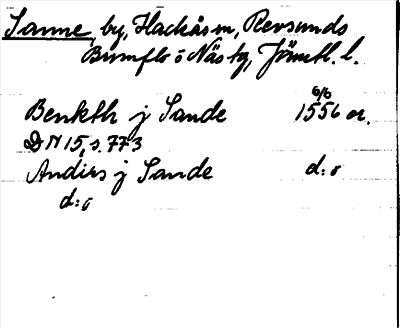 Sanne, by, Hackås sn, Revsunds
Brunflo o Näs tg, Jämtl. l.
6/6
Benkth j Sande 1556 or.
DN 15, s. 773
Andirs j Sande d:o
d:o